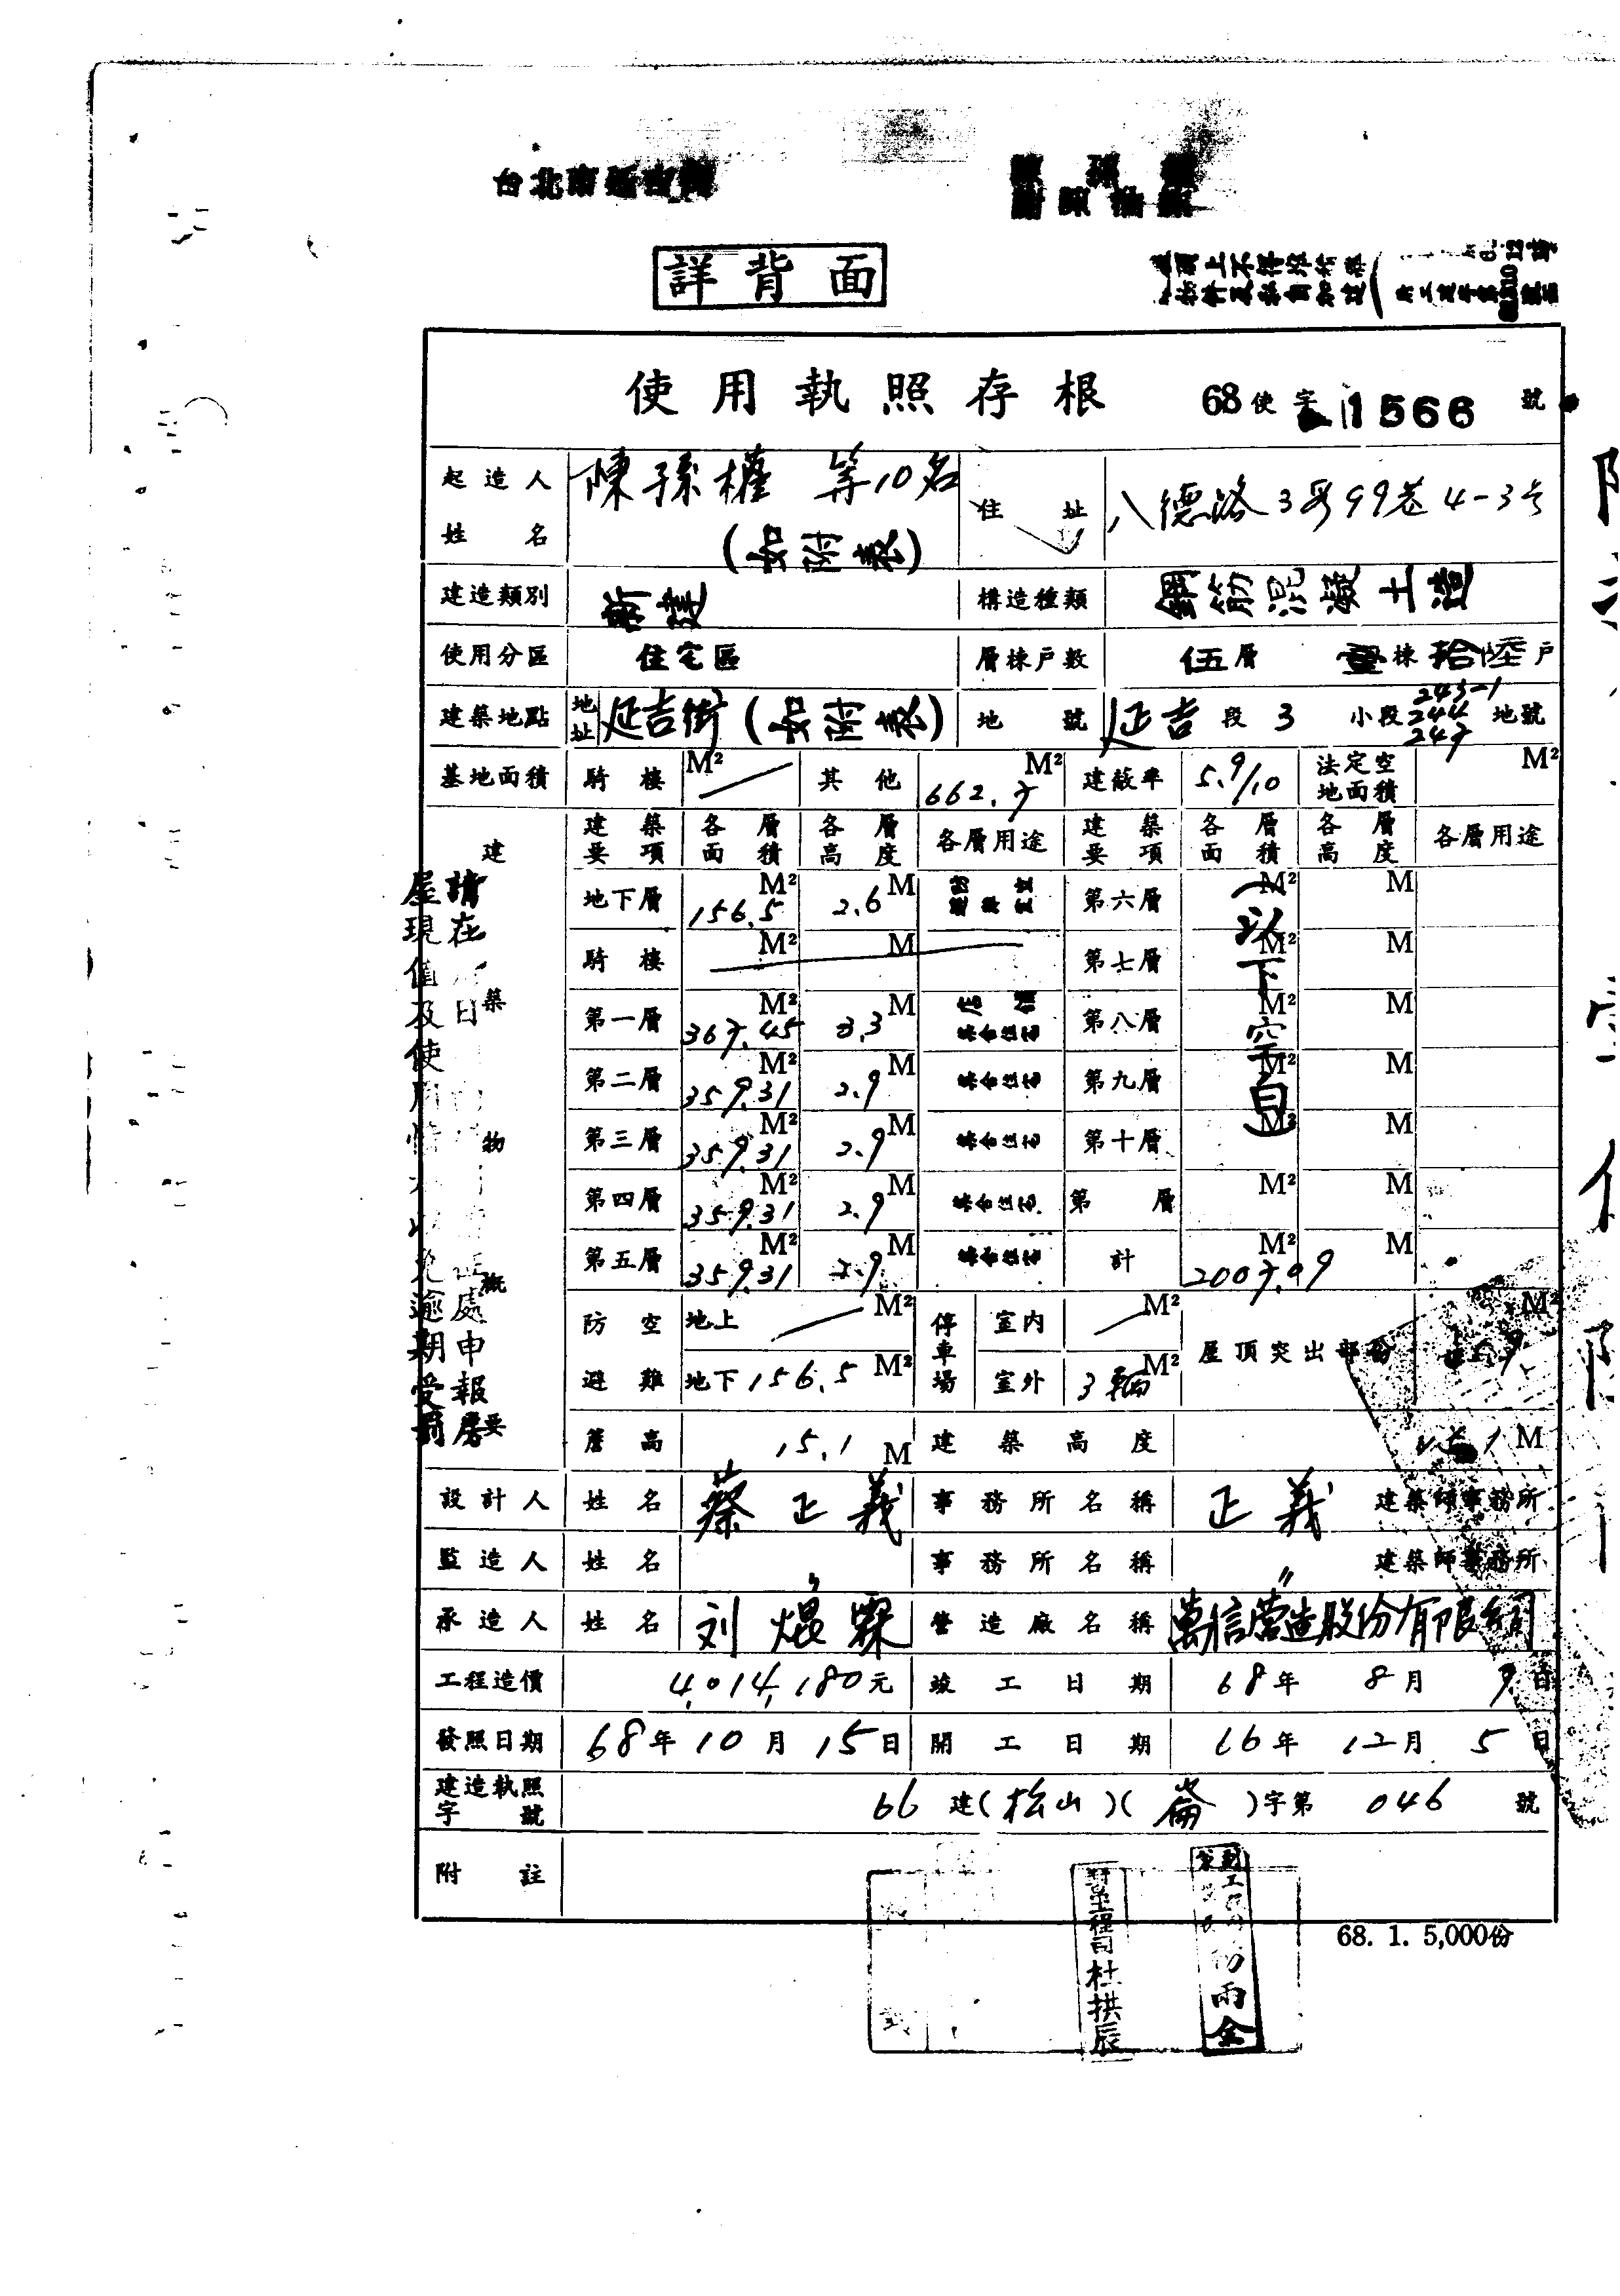 台北市延吉街
詳背面
使用執照存根 68使字 1566 號
起造人姓名 陳孫權 等10名 (如附表) 住址 八德路3段99巷4-3号
建造類別 新建 構造種類 鋼筋混凝土造
使用分區 住宅區 層棟戶數 伍層 壹棟拾陸戶
建築地點 地址 延吉街(如附表) 地號 延吉段3小段 地號
244
基地面積 騎樓 M² 其他 M² 建蔽率 5.9/10 法定空地面積 M²
建築物概要
建築要項 各層面積 各層高度 各層用途 建築要項 各層面積 各層高度 各層用途
地下層 156.5 M² 2.6 M 第六層 M² M
騎樓 M² M 第七層 M² M
第一層 M² 3.3 M 第八層 M² M
第二層 359.31 M² 2.9 M 第九層 M² M
第三層 359.31 M² 2.9 M 第十層 M² M
第四層 359.31 M² 2.9 M 第 層 M² M
第五層 359.31 M² 2.9 M 計 M² M
(以下空白
防空避難 地上 M² 停車場 室內 M² 屋頂突出部份 M²
地下 156.5 M² 室外 3輛 M²
簷高 15.1 M 建築高度 M
設計人 姓名 蔡正義 事務所名稱 正義 建築師事務所
監造人 姓名 〃 事務所名稱 〃 建築師事務所
承造人 姓名 刘焜霖 營造廠名稱 萬信营造股份有限公司
工程造價 4,014,180元 竣工日期 68年8月9日
發照日期 68年10月15日 開工日期 66年12月5日
建造執照字號 66建(松山)(崙)字第046號
附註
請在
屋現值及使
逾期受
處申報房
68. 1. 5,000份
工程司杜拱辰
雨金